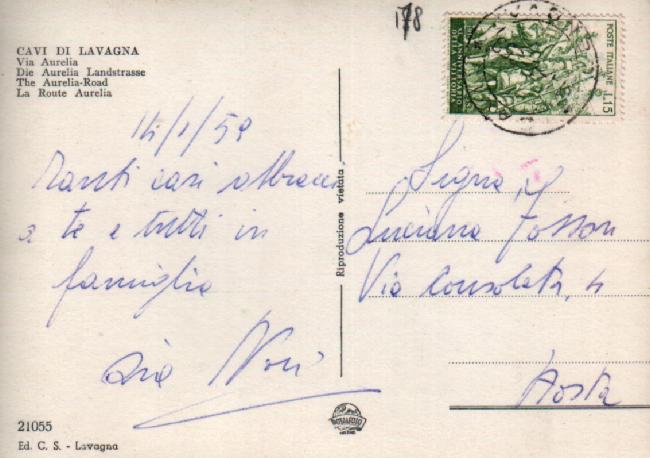 178
CAVI DI LAVAGNA
Via Aurelia
Die Aurelia Landstrasse
The Aurelia-Road
La Route Aurelia
POSTE ITALIANE L.15
14/1/59
Tanti cari abbracci
a te e tutti in
famiglia
zia Nori
Riproduzione vietata
Sig.na
Luciana Fosson
Via Consolata, 4
Aosta
21055
Ed. C. S. - Lavagna